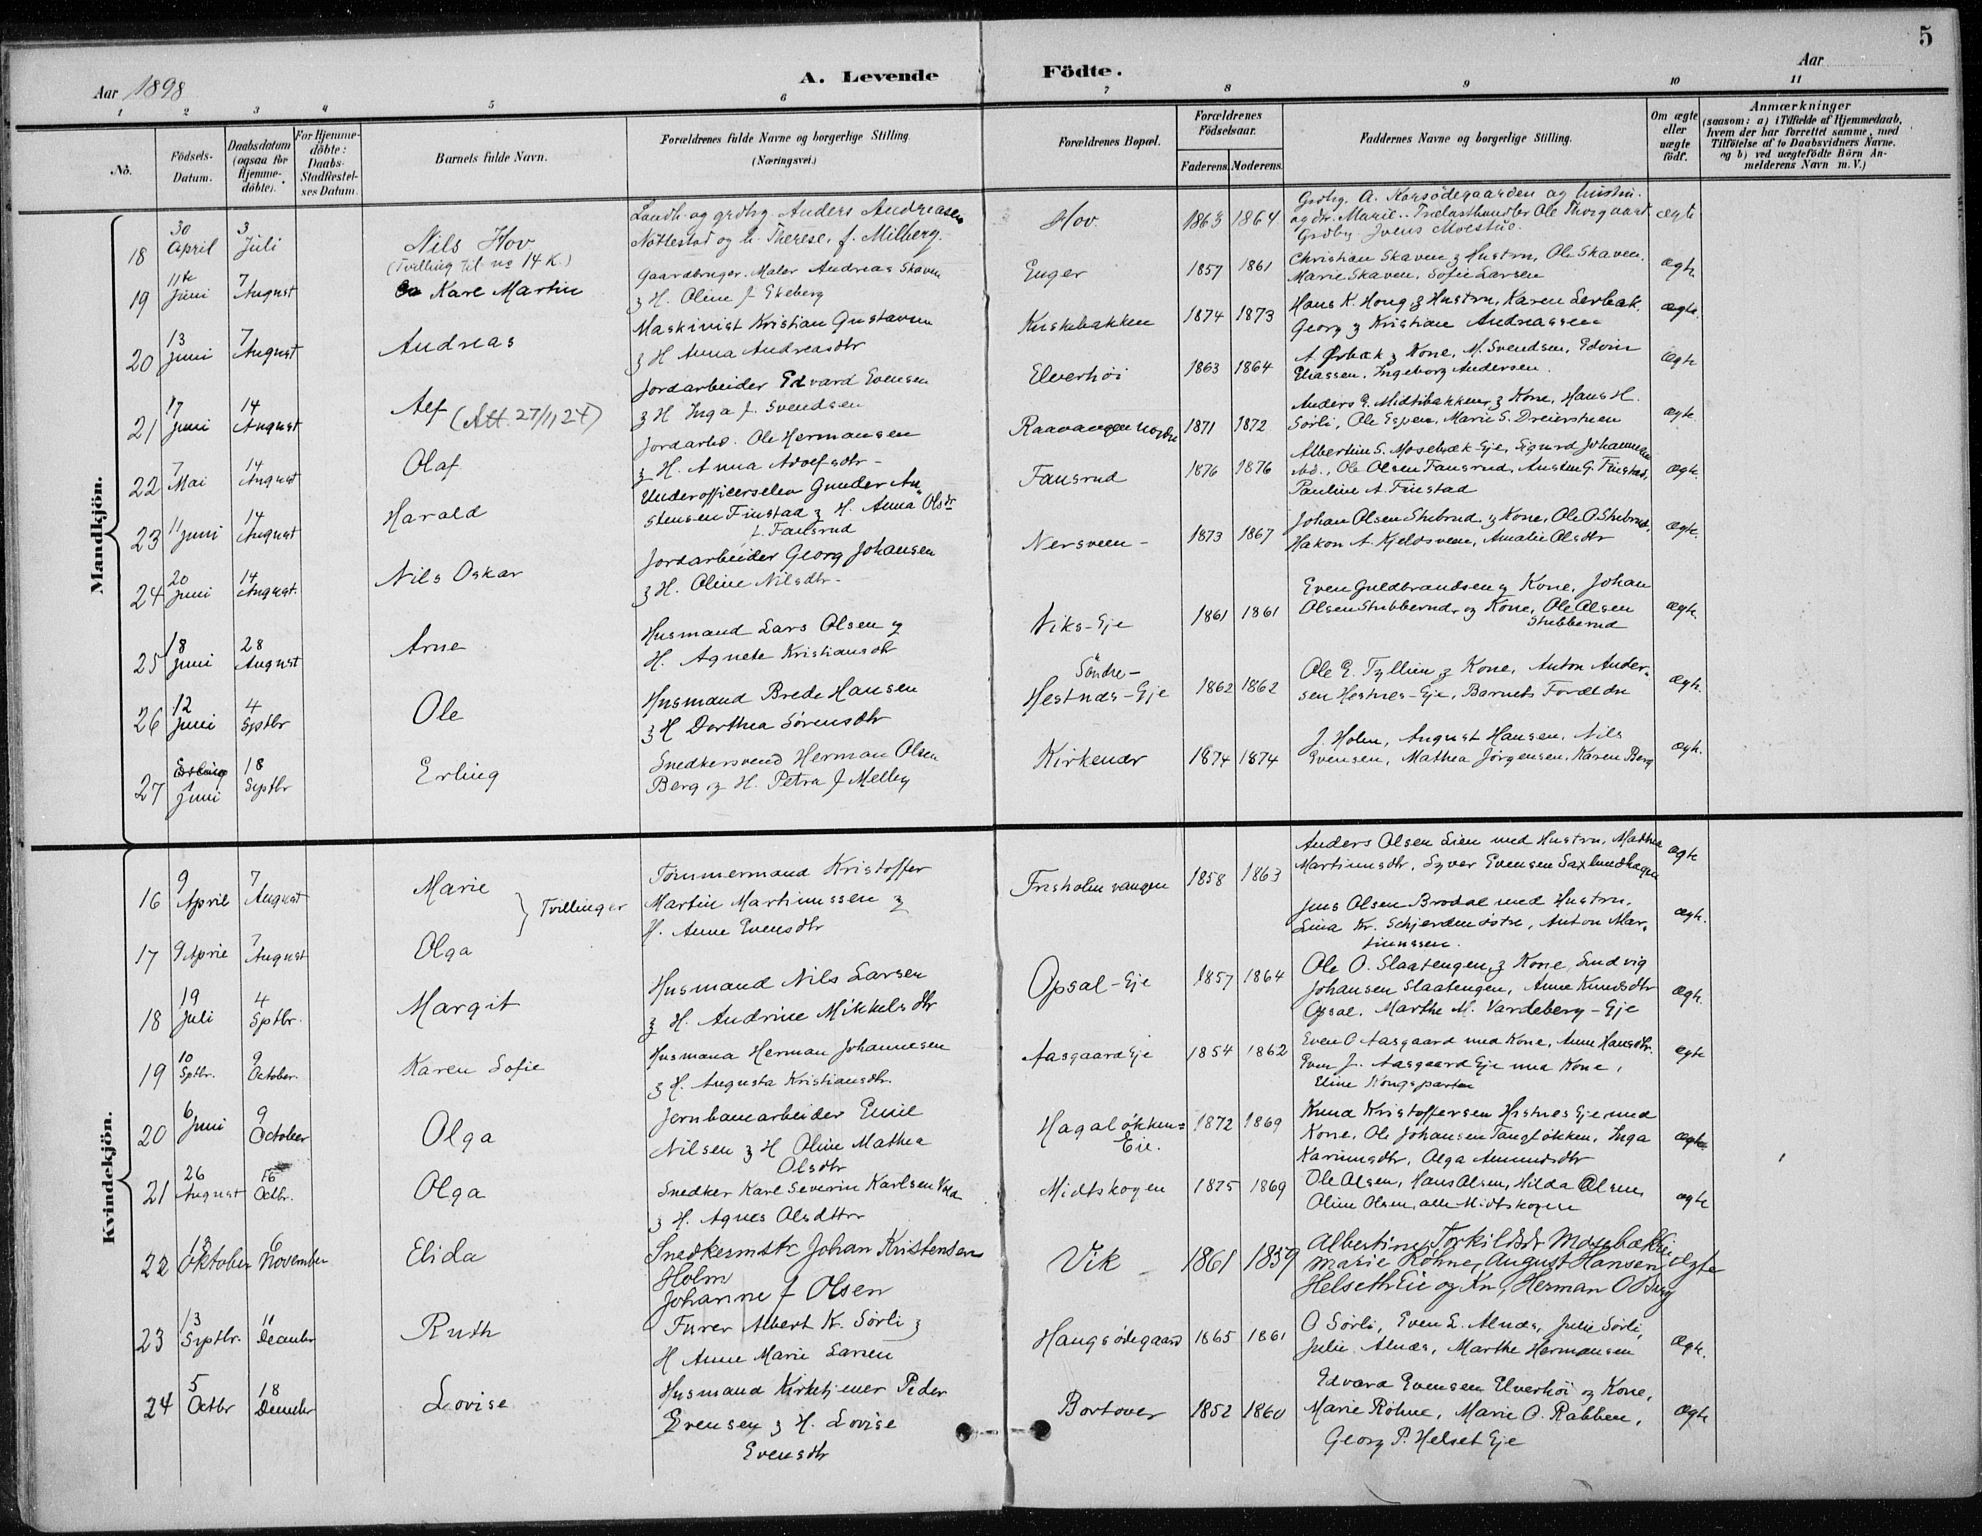 5
Aar 1898
A. Levende Födte.
Aar
1 2 3 4 5 6 7 8 9 10 11
No.
Födsels-Datum.
Daabsdatum (ogsaa for Hjemme-döbte).
For Hjemme-döbte: Daabs-Stadfæstel-ses Datum.
Barnets fulde Navn.
Forældrenes fulde Navne og borgerlige Stilling.
(Næringsvei.)
Forældrenes Bopæl.
Forældrenes Födselsaar.
Faderens. Moderens.
Faddernes Navne og borgerlige Stilling.
Om ægte eller uægte födt.
Anmærkninger
(saasom: a) i Tilfælde af Hjemmedaab, hvem der har forrettet samme, med Tilföielse af to Daabsvidners Navne, og b) ved uægtefödte Börn An-melderens Navn m. V.)
Mandkjön.
18 30 April 3 Juli Nils Hov (Tvilling til no 14 K.)
Landh. og grdbg. Anders Andreasen
Nøttestad og h. Therese, f. Milberg.
Hov 1863 1864
Grdbg. A. Korsødegaarden og hustru.
og dtr. Marie.. Trælasthandler Ole Thorgaard.
Grdbg Jvens Moestue. ægte
19 11te Juni 7 August Karl Martin
Gaardbruger. Maler Andreas Skaven
& H. Oline f Ekeberg
Enger 1857 1861
Christian Skaven & Hustru, Ole Skaven.
Marie Skaven, Sofie Larsen ægte
20 13 Juni 7 August Andreas
Maskinist Kristian Gustavsen
& H Anna Andreasdtr
Kuskebakken 1874 1873
Hans K. Houg & Hustru, Karen Lerbæk.
Georg & Kristian Andreassen ægte
21 17 Juni 14 August Alf (Att. 27/11 24)
Jordarbeider Edvard Evensen
& H Inga f. Svendsen
Elverhöi 1863 1864
A. Ørbæk & Kone, M. Svendsen, Edvin
Eliassen, Ingeborg Andersen. ægte
22 7 Mai 14 August Olaf
Jordarbd. Ole Hermansen
& H. Anna Adolfsdtr -
Raavangen nordre 1871 1872
Anders E. Midtibakken & Kone, Hans H.
Sørli, Ole Espen, Marie S. Dreierstuen ægte
23 11 Juni 14 August Harald
Underofficerselev Gunder Au
stensen Finstad & H. Anna Olsdr
f. Fansrud
Fansrud 1876 1876
Albertine S. Mosebæk Eje, Sigurd Johannesen
ibd., Ole Olsen Fansrud, Austen G. Finstad,
Pauline A. Finstad ægte
24 20 Juni 14 August. Nils Oskar
Jordarbeider Georg Johansen
& H. Oline Nilsdtr -
Nersveen - 1873 1867
Johan Olsen Stubrud & Kone, Ole O. Stubrud,
Hakon A. Kjeldsveen, Amalie Olsdtr ægte.
25 18 Juni 28 August Arne
Husmand Lars Olsen &
H. Agnete Kristiansdtr
Viks-Eje 1861 1861
Even Guldbrandsen & Kone, Johan
Olsen Stubberud & Kone, Ole Olsen
Stubberud ægte.
26 12 Juni 4 Sptbr Ole
Husmand Brede Hansen
& H Dorthea Sørensdtr
Söndre-
Hestnæs-Eje 1862 1862
Ole E. Tyllien & Kone, Anton Ander-
sen Hestnes-Eje, Barnets Forældre ægte.
27 Juni 18 Septbr Erling
Snedkersvend Herman Olsen
Berg & H. Petra f Melby
Kirkenær 1874 1874
J. Holm, August Hansen, Nils
Evensen, Mathea Jörgensen, Karen Berg ægte.
Kvindekjön.
16 9 April 7 August Marie
} Tvillinger
17 9 April 7 August Olga
Tömmermand Kristoffer
Martin Martinussen &
H. Anne Evensdtr
Frisholmvangen 1858 1863
Anders Olsen Lien med Hustru, Mathea
Martinusdtr, Syver Evensen Saxlundhagen ægte
Jens Olsen Brodal med Hustru,
Lina Kr. Schjerden østre, Anton Mar-
tinussen. ægte.
18 19 Juli 4 Sptbr. Margit
Husmand Nils Larsen
& H. Andrine Mikkelsdtr
Opsal-Eje 1857 1864
Ole O. Slaatengen & Kone, Ludvig
Johansen Slaatengen, Anne Knudsdtr
Opsal, Marthe M. Vardeberg-Eje ægte.
19 10 Sptbr. 9 October. Karen Sofie
Husmand Herman Johannesen
& H. Augusta Kristiansdtr.
Aasgaard Eje 1854 1862
Even O Aasgaard med Kone, Anne Hansdtr.
Even J. Aasgaard Eje med Kone,
Eline Kongsparten ægte
20 6 Juni 9 October Olga
Jernbanearbeider Emil
Nilsen & H Oline Mathea
Olsdtr
Hagaløkken=
Eie. 1872 1869
Knud Kristoffersen Hestnes Eje med
Kone, Ole Johansen Tangløkken, Inga
Karinusdtr, Olga Amundsdtr ægte
21 26 August 16 Octbr. Olga
Snedker Karl Severin Karlsen Vold
& H. Agnes Olsdtter
Midtskogen 1875 1869
Ole Olsen, Hans Olsen, Hilda Olsen,
Oline Olsen, alle Midtskogen ægte
22 13 Oktober 6 November Elida
Snedkermstr Johan Kristensen
Holm
Johanne f Olsen
Vik - 1861 1859
Albertine Torkildsdr Mosebækkin
Marie Röhne, August Hansen
Helseth Eie og Kn, Herman O Berg ægte
23 13 Septbr. 11 December Ruth
Furer Albert K. Sørli &
H Anne Marie Larsen
Haugsödegaard 1865 1861
O Sørli, Even L. Alnæs, Julie Sørli,
Julie Alnæs, Marthe Hermansen ægte.
24 5 Octbr 18 December Lovise
Husmand Kirketjener Peder
Evensen & H. Lovise
Evensdtr
Bortover 1852 1860
Edvard Evensen Elverhöi og Kone,
Marie Röhne, Marie O. Rabben,
Georg P. Helset Eje ægte